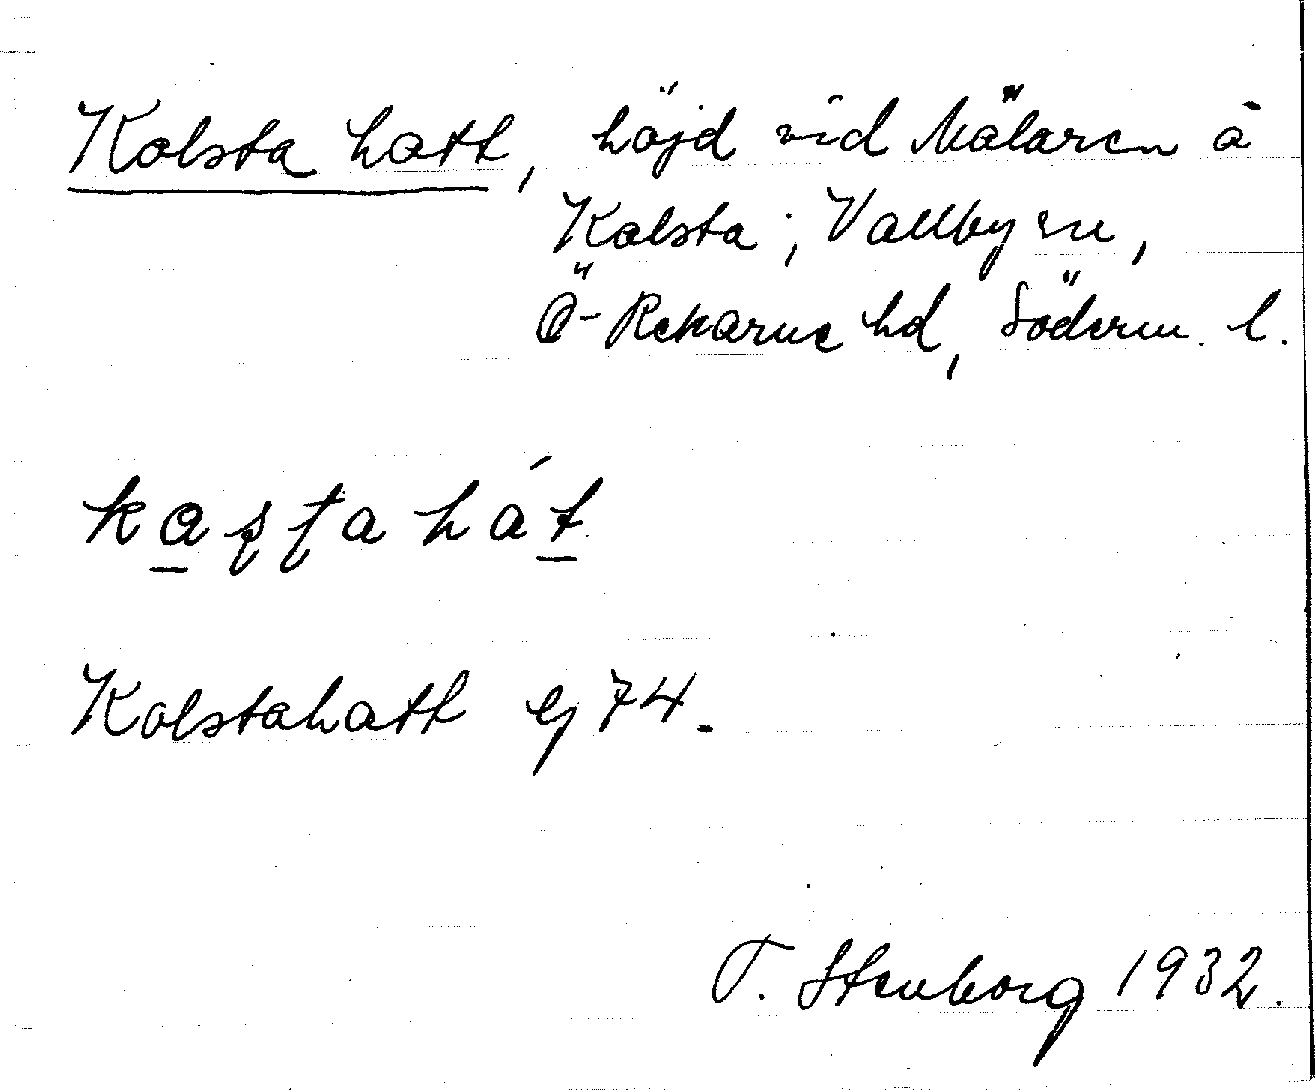 Kalsta hatt, höjd vid Mälaren å
Kalsta; Vallby sn,
Ö-Rekarne hd, Söderm. l.
ka̱ʂʈa hát̠
Kalstahatt ej 74.
T. Stenborg 1932.